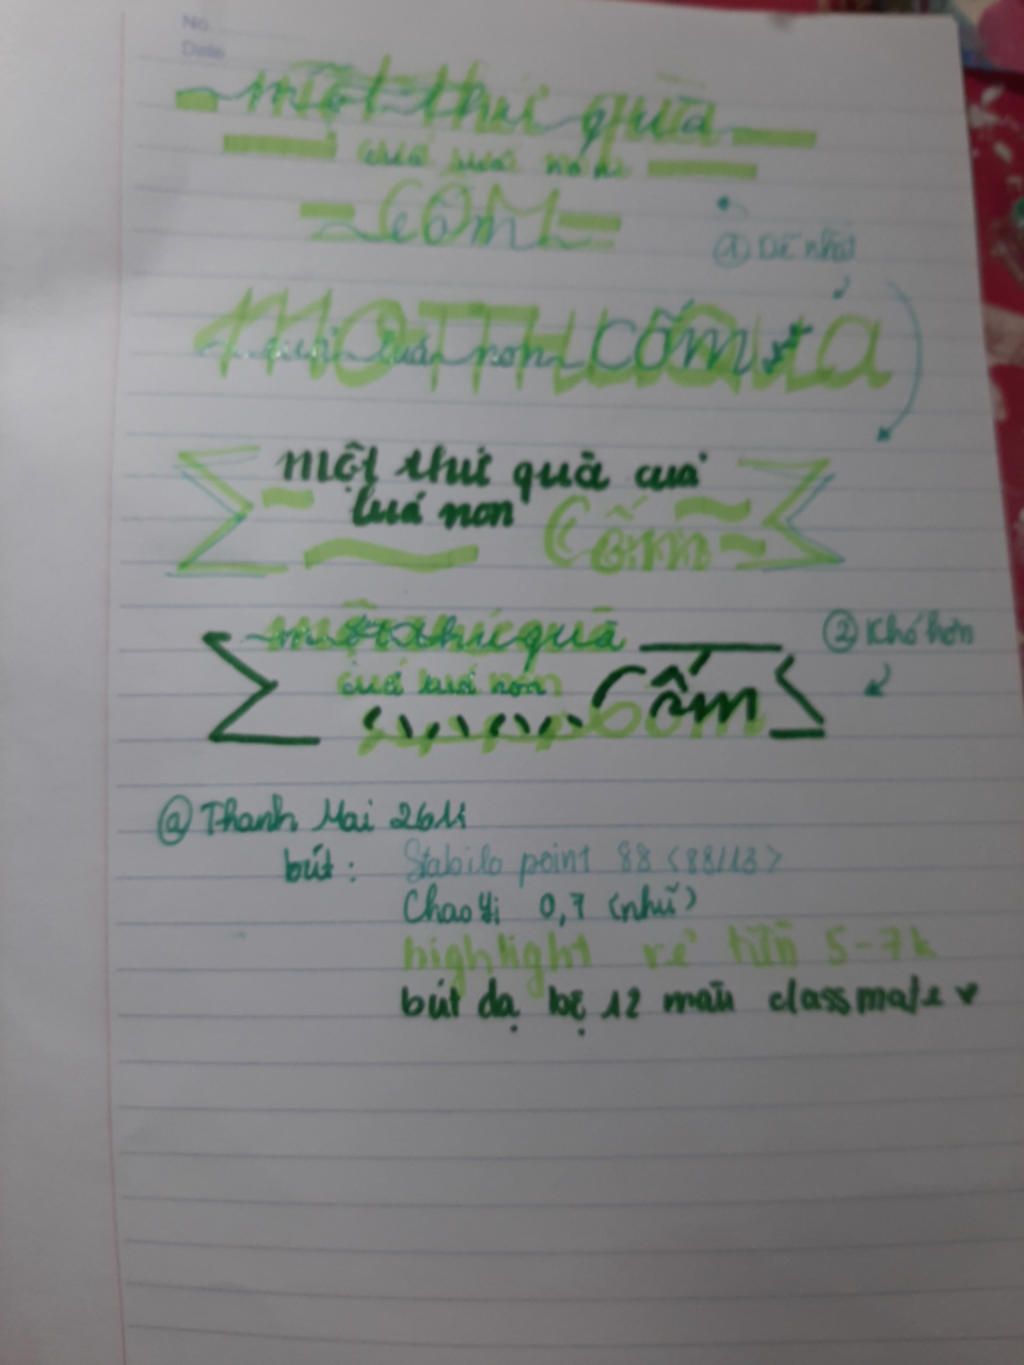 No.
Date
một thứ quà
của lúa non
CỐM
① Dễ nhất
MỘT THỨ QUÀ
của lúa non CỐM
một thứ quà của
lúa non Cốm
② Khó hơn
một thứ quà
của lúa non Cốm
@ Thanh Mai 2611
bút: Stabilo point 88 <88/13>
Chaoyi 0,7 (nhũ)
highlight rẻ tiền 5-7k
bút dạ bộ 12 màu classmate ♥